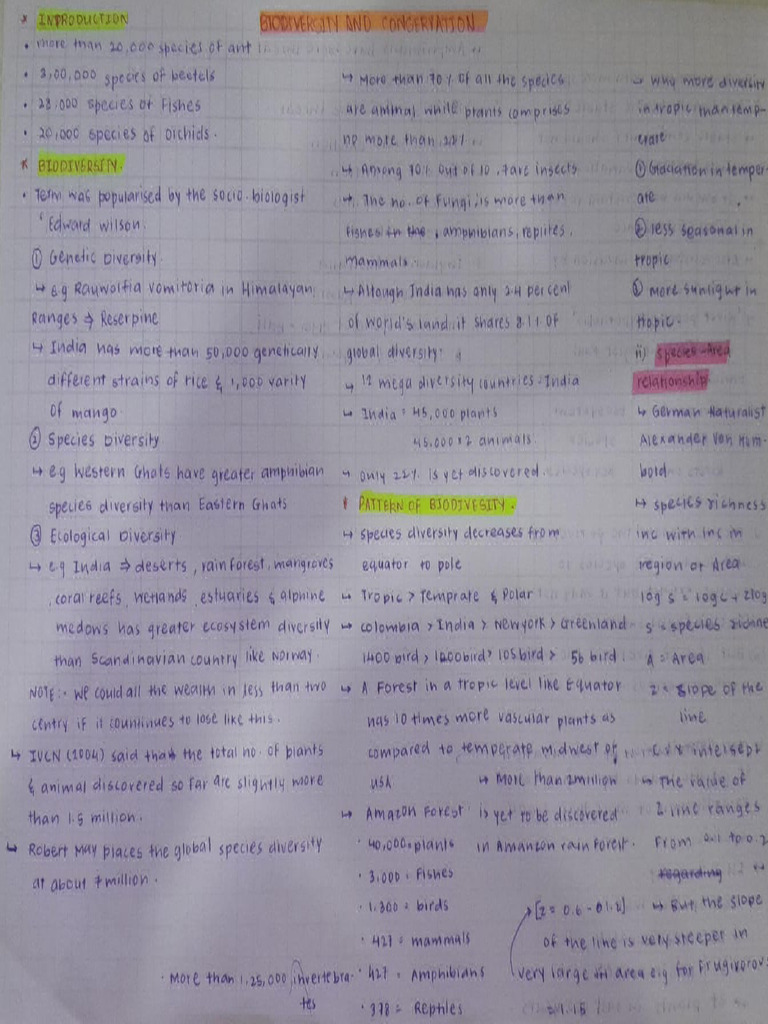 BIODIVERSITY AND CONSERVATION
* INTRODUCTION
• more than 20,000 species of ant
• 3,00,000 species of beetels
• 28,000 species of Fishes
• 20,000 species of Oichids.
* BIODIVERSITY.
• Term was popularised by the socio-biologist
'Edward Wilson.
① Genetic Diversity.
↳ eg Rauwolfia vomitoria in Himalayan
Ranges ⇒ Reserpine
↳ India has more than 50,000 genetically
different strains of rice & 1,000 varity
of mango.
② Species Diversity
↳ eg Western Ghats have greater amphibian
species diversity than Eastern Ghats
③ Ecological Diversity
↳ eg India ⇒ deserts, rain forest, mangroves
, coral reefs, wetlands, estuaries & alphine
medows has greater ecosystem diversity
than Scandinavian country like Norway.
NOTE:- we could all the wealth in less than two
centry if it countinues to lose like this.
↳ IUCN (2004) said that the total no. of plants
& animal discovered so far are slightly more
than 1.5 million.
↳ Robert May places the global species diversity
at about 7 million.
↳ More than 70% of all the species
are animal while plants comprises
no more than 22%.
↳ Among 70% out of 10, 7 are insects
↳ The no. of Fungi is more than
fishes in the, amphibians, reptiles,
mammals.
↳ Altough India has only 2.4 percent
of world's land, it shares 8.1% of
global diversity.
↳ 12 mega diversity countries - India
↳ India = 45,000 plants
45,000×2 animals.
↳ only 22% is yet discovered.
* PATTERN OF BIODIVESITY.
↳ species diversity decreases from
equator to pole
↳ Tropic > Temprate & Polar
↳ Colombia > India > Newyork > Greenland
1400 bird > 1200bird > 105 bird > 56 bird
↳ A Forest in a tropic level like Equator
has 10 times more vascular plants as
compared to temperate midwest of
USA
↳ Amazon Forest
• 40,000 = plants
• 3,000 = Fishes
• 1,300 = birds
• 427 = mammals
• 427 = Amphibians
• 378 = Reptiles
• More than 1,25,000 invertebra-
tes
↳ More than 2million
is yet to be discovered
in Amanzon rain Forest.
↳ Why more diversity
in tropic than temp-
erate
① Glaciation in temper-
ate
② less seasonal in
tropic
③ more sunlight in
tropic.
ii) Species-Area
relationship
↳ German Naturalist
Alexander Von Hum-
bold
↳ species richness
inc with inc in
region or Area.
log s = log c + z log
S = species richne
A = Area
Z = slope of the
line
C = Y intersept
↳ The value of
Z line ranges
From 0.1 to 0.2
regarding
↳ But, the slope
[Z = 0.6 -
of the line is very steeper in
very large area eig for Frugivorous
= 1.15